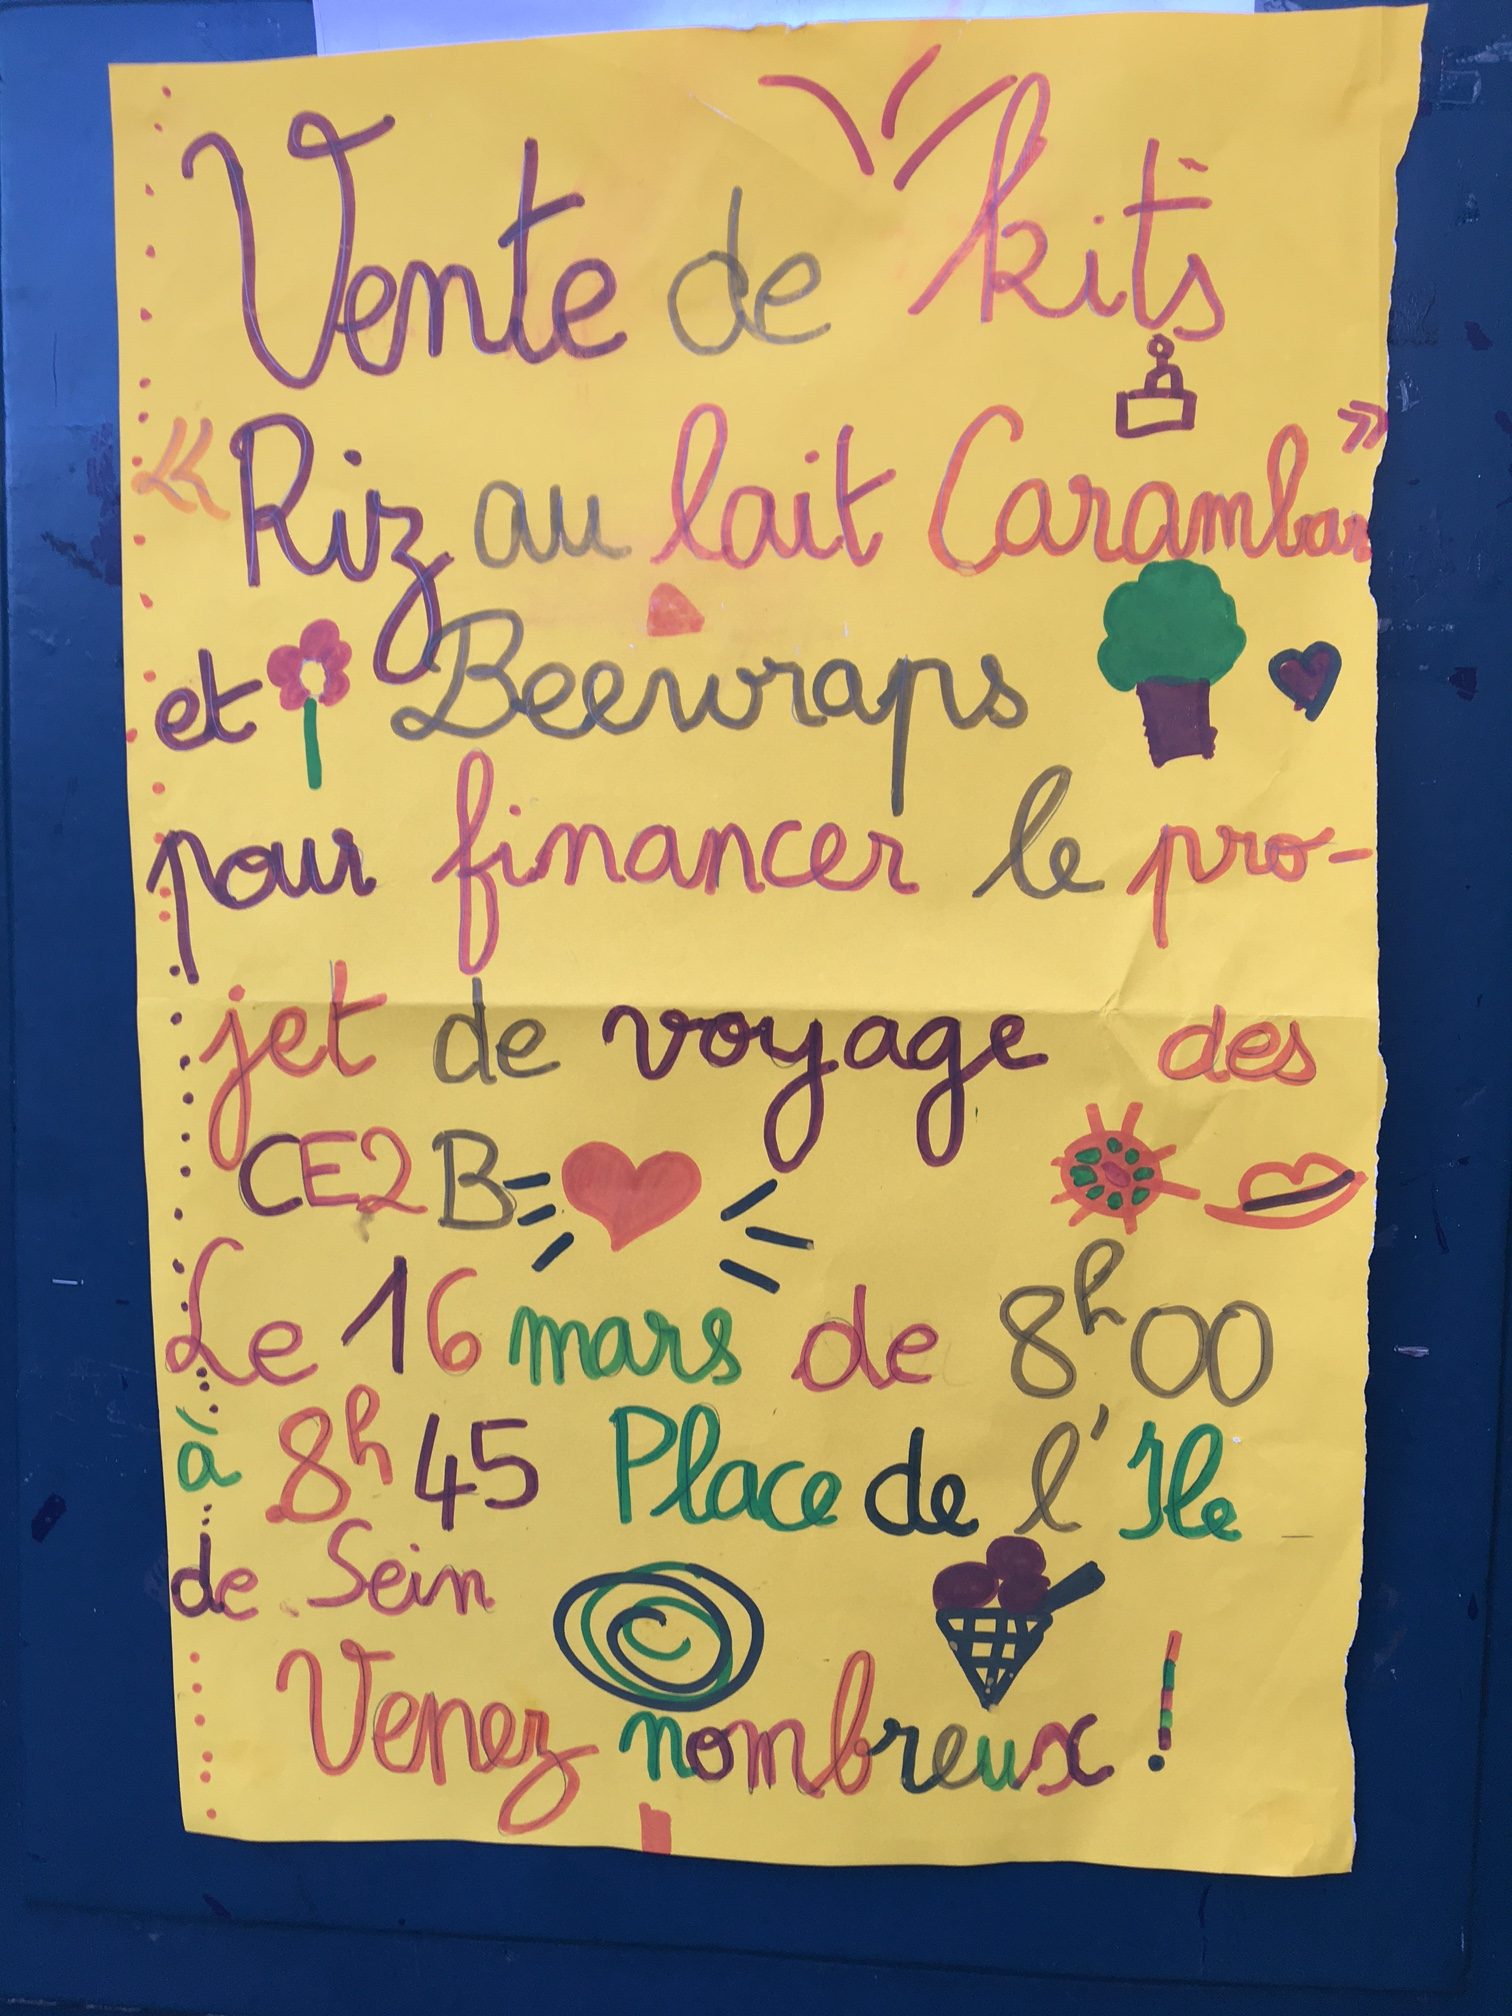 Vente de kits
« Riz au lait Carambar »
et Beewraps
pour financer le pro-
jet de voyage des
CE2B
Le 16 mars de 8h00
à 8h45 Place de l'Ile
de Sein
Venez nombreux !